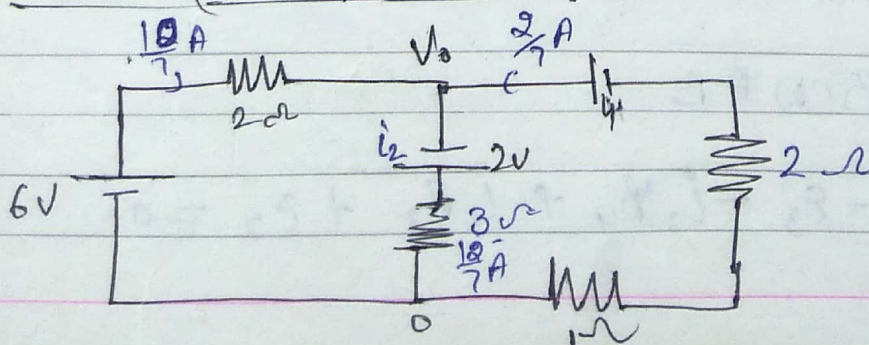 10/7 A V₀ 2/7 A
2Ω 4
i₂ 2V 2 Ω
6V 3Ω
12/7 A
0 1Ω